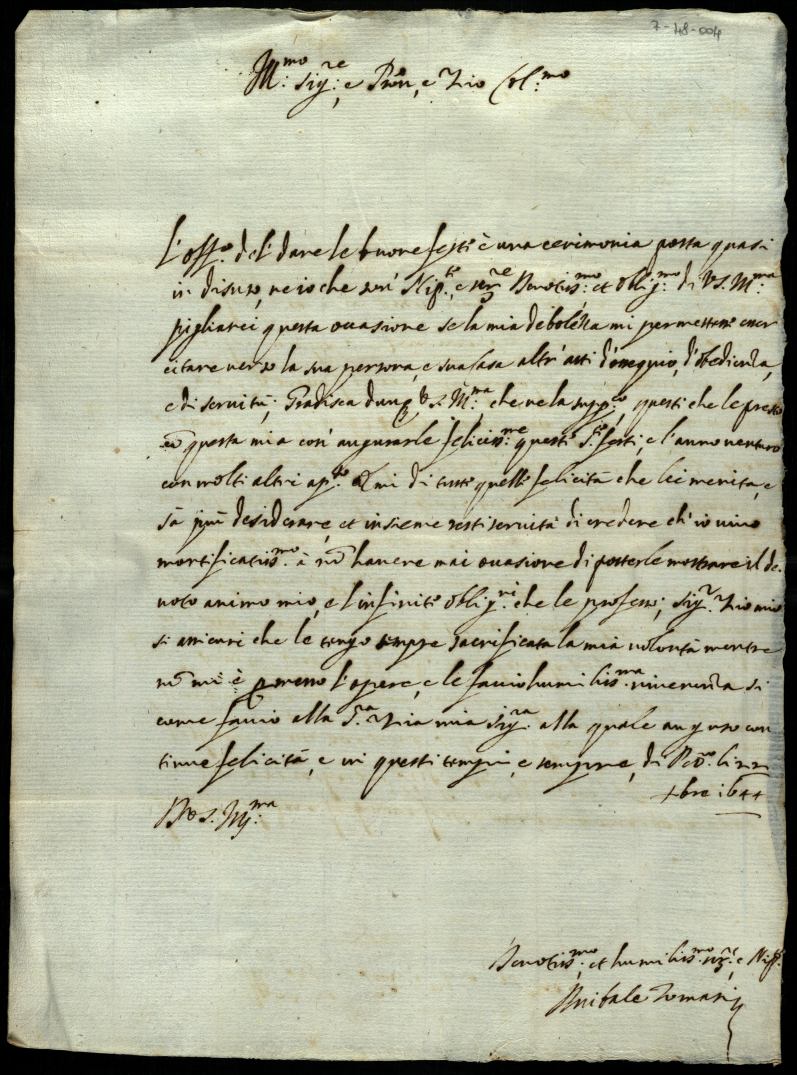 7-48-004
Ill.mo Sig.re e Pron, e Zio Col.mo
l'off.o dell dare le buone feste è una cerimonia posta quasi
in disuso, ne io che son' Nip.te, e ser.re Devotiss.mo et oblig.mo di V.S. Ill.ma
pigliarei questa occasione se la mia debolezza mi permettesse eser
citare verso la sua persona, e sua Casa altri atti d'ossequio, d'obedienza,
e di servitù; Gradisca dunq. V.S. Ill.ma, che ne la supp.co, questi che le presto
cõ questa mia con' augurarle feliciss.me queste S.te feste, e l'anno venturo
con molti altri ap.so di tutte quelle felicità che lei merita, e
sà può desiderare, et insieme resti servita di credere ch'io vivo
mortificatiss.mo à nõ havere mai occasione di poterle mostrare il de
voto animo mio, e l'infinite oblig.ni che le professo; Sig.r Zio mio
si assicuri che le tengo sempre sacrificata la mia volontà mentre
nõ mi è permesso l'opere, e le faccio humiliss.ma riverenza si
come faccio alla S.ra Zia mia Sig.ra alla quale auguro con
tinue felicità, e in questi tempi, e sempre, di
Xbre 1644
Di V.S. Ill.ma
Devotiss.mo, et humiliss.mo ser.re e Nip.te
Anibale Tomasi